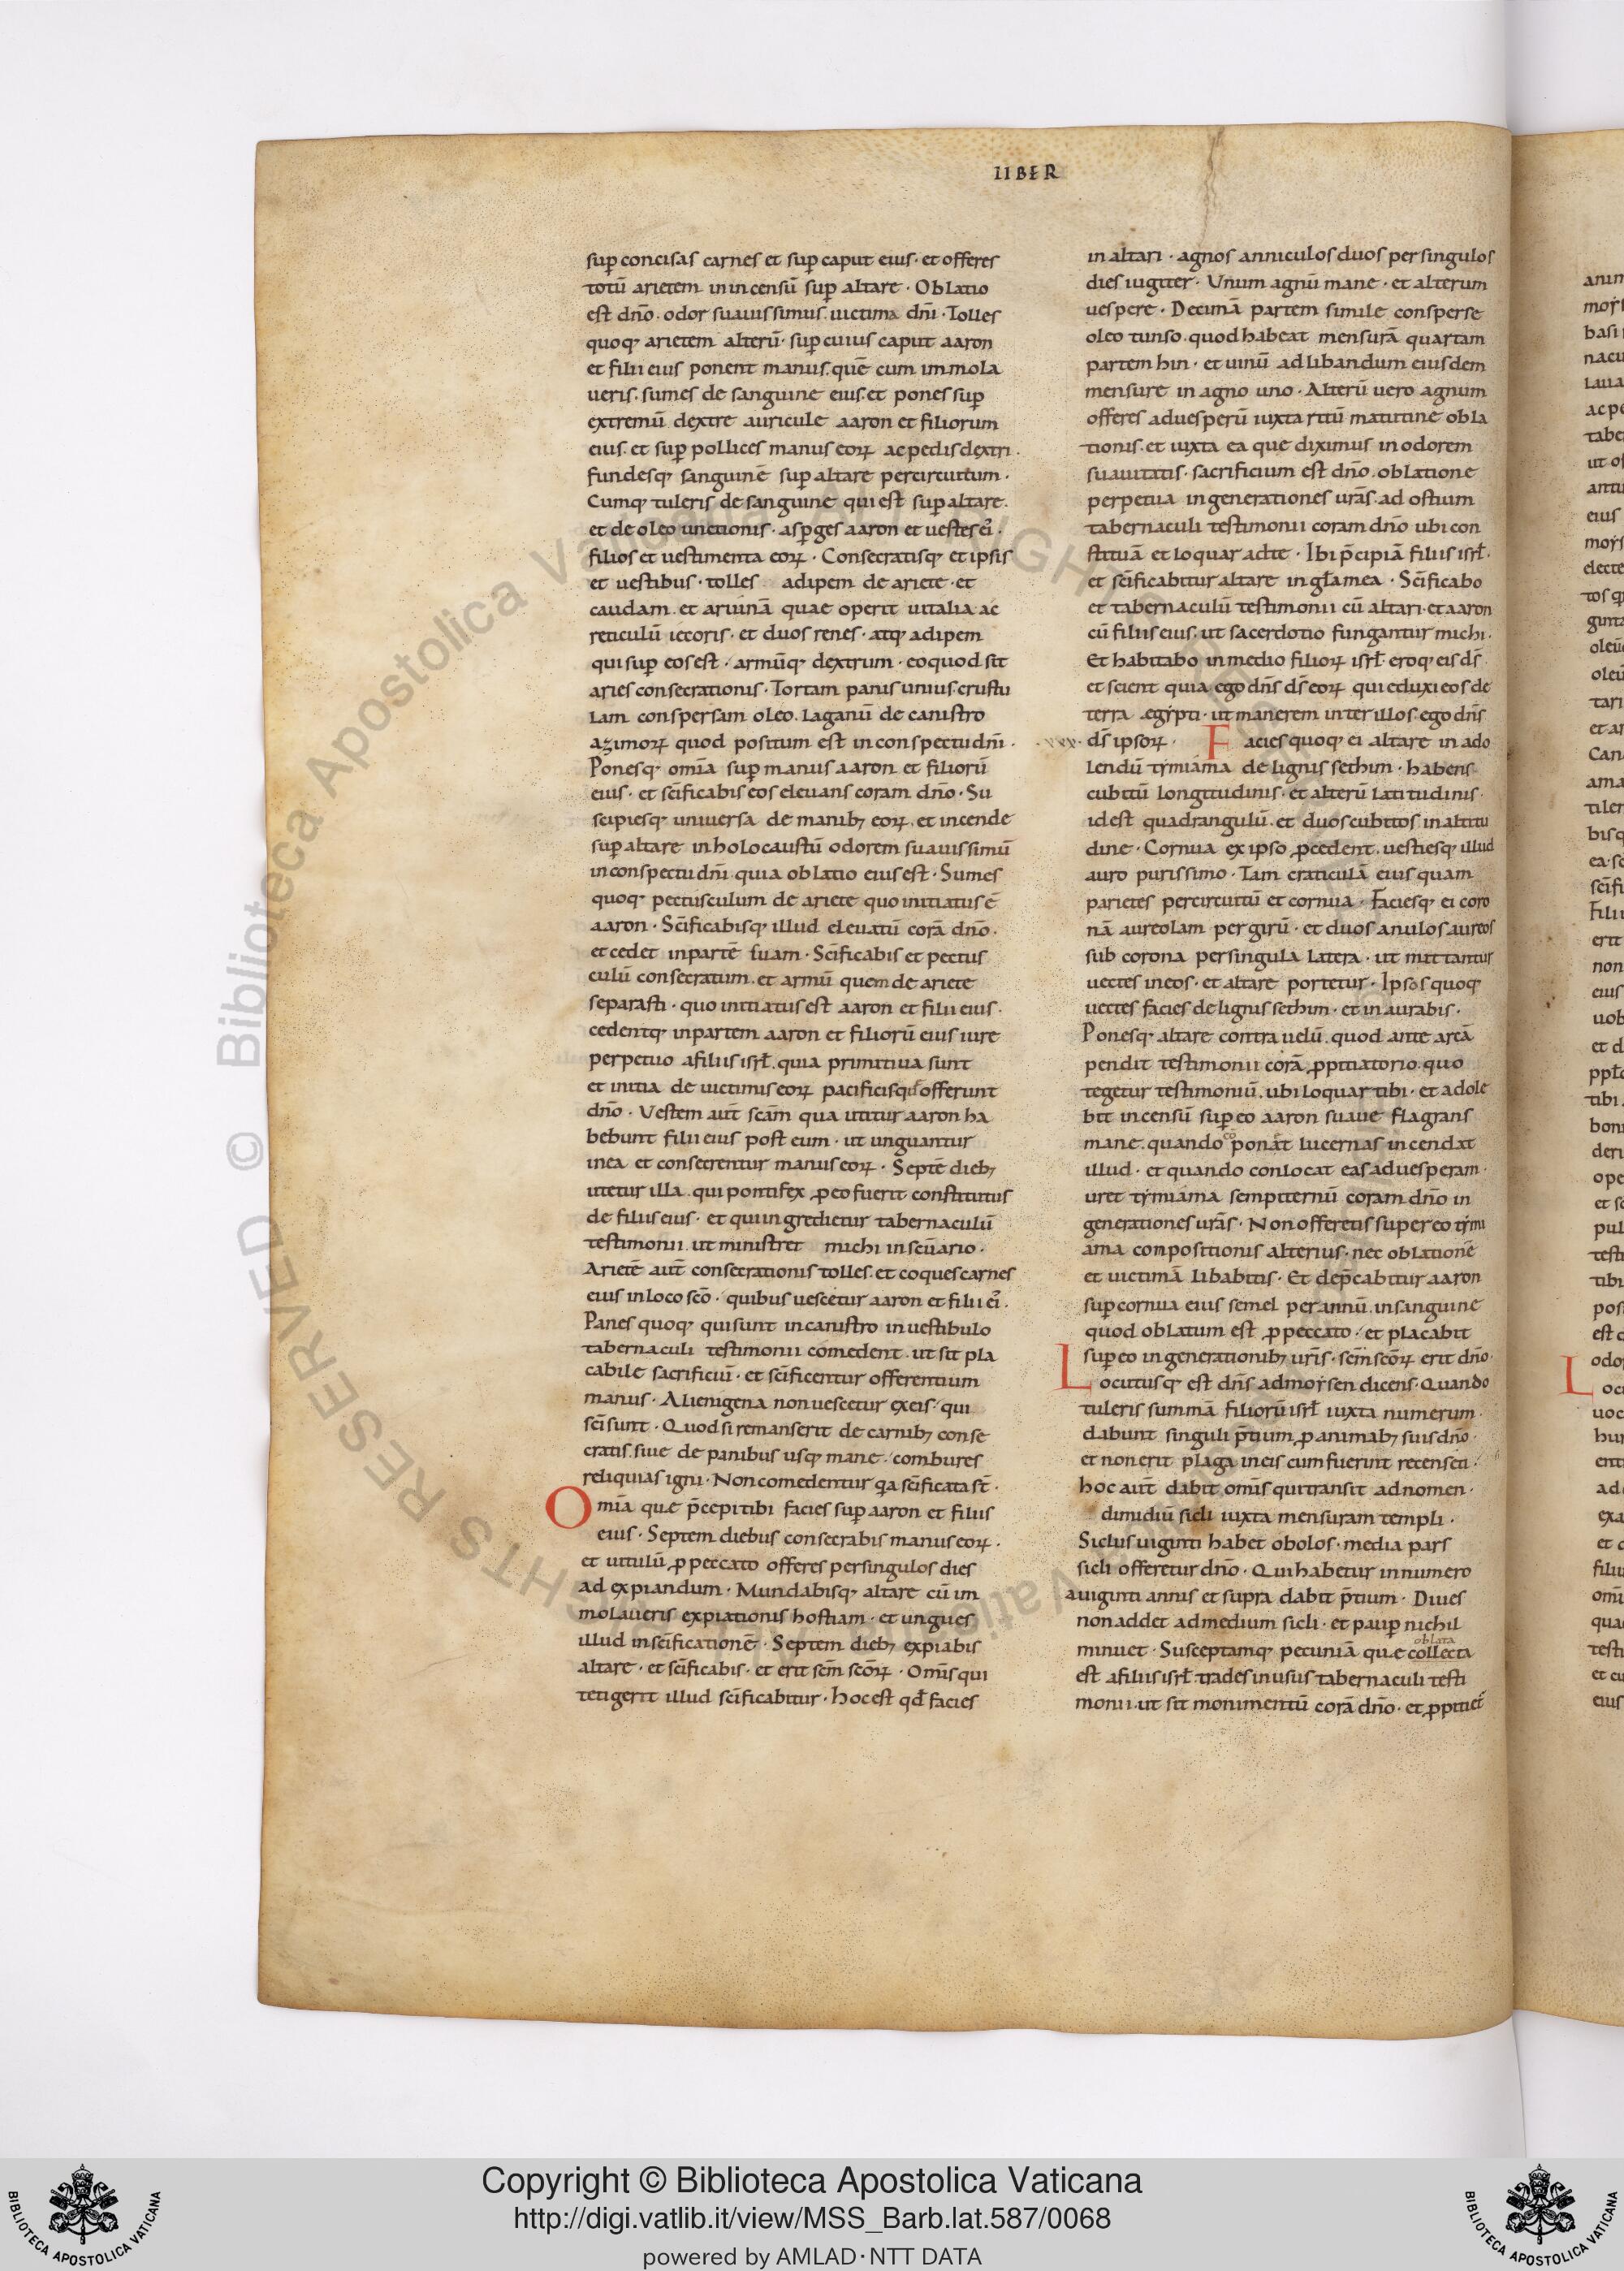 LIBER
sup̄ concisas carnes et sup̄ caput eius · et offeres
totū arietem in incensū sup̄ altare · Oblatio
est dn̄o · odor suauissimus uictima dn̄i · Tolles
quoq; arietem alterū · sup̄ cuius caput aaron
et filii eius ponent manus · quē cum immola
ueris · sumes de sanguine eius · et pones sup̄
extremū dextre auricule aaron et filiorum
eius · et sup̄ pollices manus eoꝝ ac pedis dextri ·
fundesq; sanguinē sup̄ altare percircuitum ·
Cumq; tuleris de sanguine qui est sup̄ altare ·
et de oleo unctionis · asp̄ges aaron et uestes ei᾽ ·
filios et uestimenta eoꝝ · Consecratisq; et ipsis
et uestibus · tolles adipem de ariete · et
caudam · et aruinā quae operit uitalia ac
reticulū iecoris · et duos renes · atq; adipem
qui sup̄ eos est · armūq; dextrum · eo quod sit
aries consecrationis · Tortam panis unius · crustu
lam conspersam oleo · laganū de canistro
azimoꝝ quod positum est in conspectu dn̄i ·
Ponesq; omīa sup̄ manus aaron et filiorū
eius · et sc̄ificabis eos eleuans coram dn̄o · Su
scipiesq; uniuersa de manib; eoꝝ · et incende
sup̄ altare in holocaustū odorem suauissimū
in conspectu dn̄i · quia oblatio eius est · Sumes
quoq; pectusculum de ariete quo initiatus ē
aaron · Sc̄ificabisq; illud eleuatū corā dn̄o ·
et cedet in partē tuam · Sc̄ificabis et pectus
culū consecratum · et armū quem de ariete
separasti · quo initiatus est aaron et filii eius ·
cedentq; in partem aaron et filiorū eius iure
perpetuo a filiis isrł · quia primitiua sunt
et initia de uictimis eoꝝ pacificis que offerunt
dn̄o · Vestem aut̄ scām qua utitur aaron ha
bebunt filii eius post eum · ut unguantur
in ea et consecrentur manus eoꝝ · Septē dieb;
utetur illa · qui pontifex ꝓ eo fuerit constitutus
de filiis eius · et qui ingredietur tabernaculū
testimonii · ut ministret michi in scūario ·
Arietē aut̄ consecrationis tolles · et coques carnes
eius in loco scō · quibus uescetur aaron et filii ei᾽ ·
Panes quoq; qui sunt in canistro in uestibulo
tabernaculi testimonii comedent · ut sit pla
cabile sacrificiū · et sc̄ificentur offerentium
manus · Alienigena non uescetur ex eis · qui
sc̄i sunt · Quod si remanserit de carnib; conse
cratis · siue de panibus usq; mane · combures
reliquias igni · Non comedentur qa sc̄ificata st̄ ·
Omīa que p̄cepi tibi facies sup̄ aaron et filiis
eius · Septem diebus consecrabis manus eoꝝ ·
et uitulū ꝓ peccato offeres per singulos dies
ad expiandum · Mundabisq; altare cū im
molaueris expiationis hostiam · et ungues
illud in sc̄ificationē · Septem dieb; expiabis
altare · et sc̄ificabis · et erit sc̄m sc̄oꝝ · Omīs qui
tetigerit illud sc̄ificabitur · Hoc est qđ facies
in altari · agnos anniculos duos per singulos
dies iugiter · Vnum agnū mane · et alterum
uespere · Decimā partem simile consperse
oleo tunso · quod habeat mensurā quartam
partem hin · et uinū ad libandum eiusdem
mensure in agno uno · Alterū uero agnum
offeres ad uesperū iuxta ritū matutine obla
tionis · et iuxta ea que diximus in odorem
suauitatis · sacrificium est dn̄o · oblatione
perpetua in generationes urās · ad ostium
tabernaculi testimonii coram dn̄o ubi con
stituā et loquar ad te · Ibi p̄cipiā filiis isrł ·
et sc̄ificabitur altare in gła mea · Sc̄ificabo
et tabernaculū testimonii cū altari · et aaron
cū filiis eius · ut sacerdotio fungantur michi ·
Et habitabo in medio filioꝝ isrł · eroq; eis ds̄
et scient quia ego dn̄s ds̄ eoꝝ qui eduxi eos de
terra egypti · ut manerem inter illos · ego dn̄s
xxx · ds̄ ipsoꝝ · Facies quoq; ei altare in ado
lendū tymiāma de lignis sethim · habens
cubitū longitudinis · et alterū latitudinis ·
id est quadrangulū · et duos cubitos in altitu
dine · Cornua ex ipso ꝓcedent · uestiesq; illud
auro purissimo · Tam craticulā eius quam
parietes percircuitū et cornua · Faciesq; ei coro
nā aureolam per girū · et duos anulos aureos
sub corona per singula latera · ut mittantur
uectes in eos · et altare portetur · Ipsos quoq;
uectes facies de lignis sethim · et inaurabis ·
Ponesq; altare contra uelū · quod ante arcā
pendit testimonii corā ꝓpitiatorio · quo
tegetur testimoniū · ubi loquar tibi · et adole
bit incensū sup̄ eo aaron suaue flagrans
mane · quando cōponat lucernas incendat
illud · et quando conlocat eas ad uesperam ·
uret tymiāma sempiternū coram dn̄o in
generationes urās · Non offeretis super eo tymi
āma compositionis alterius · nec oblationē
et uictimā libabitis · Et dep̄cabitur aaron
sup̄ cornua eius semel per annū · in sanguine
quod oblatum est ꝓ peccato · et placabit
sup̄ eo in generationib; ur̄is · sc̄m sc̄oꝝ erit dn̄o ·
Locutusq; est dn̄s ad moysen dicens · Quando
tuleris summā filiorū isrł iuxta numerum ·
dabunt singuli p̄tium ꝓ animab; suis dn̄o ·
et non erit plaga in eis cum fuerint recensiti ·
hoc aut̄ dabit omīs qui transit ad nomen ·
dimidiū sicli iuxta mensuram templi ·
Siclus uiginti habet obolos · media pars
sicli offeretur dn̄o · Qui habetur in numero
a uiginti annis et supra dabit p̄tium · Diues
non addet ad medium sicli · et paup̄ nichil
oblata
minuet · Susceptamq; pecuniā que collecta
est a filiis isrł · trades in usus tabernaculi testi
monii · ut sit monimentū corā dn̄o · et ꝓpitiet᾽
Copyright © Biblioteca Apostolica Vaticana
http://digi.vatlib.it/view/MSS_Barb.lat.587/0068
powered by AMLAD·NTT DATA
BIBLIOTECA APOSTOLICA VATICANA
BIBLIOTECA APOSTOLICA VATICANA